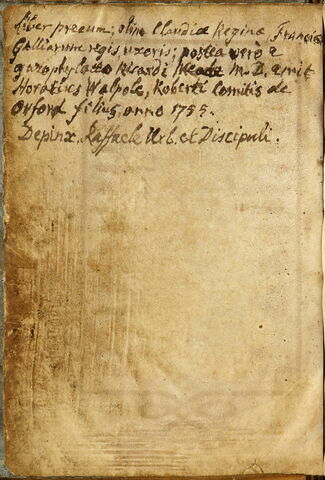 Liber precum; olim Claudiæ Reginæ Francisci
Galliarum regis uxoris; postea verò e
gazophylacio Ricardi Meade M. D. emit
Horatius Walpole, Roberti Comitis de
Orford filius, anno 1755.
Depinx. Raffaele Urb. et Discipuli.